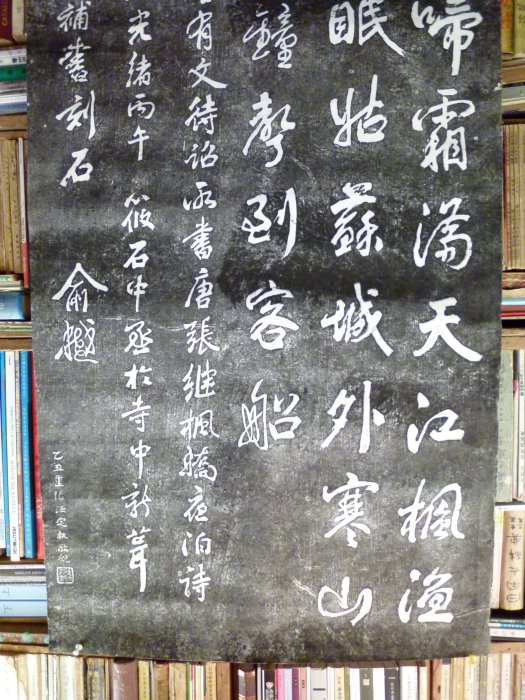 啼霜滿天江楓漁
眠姑蘇城外寒山
鐘聲到客船
有文待詔所書唐張继楓橋夜泊詩
光緒丙午 筱石中丞於寺中新葺
補書刻石
俞樾